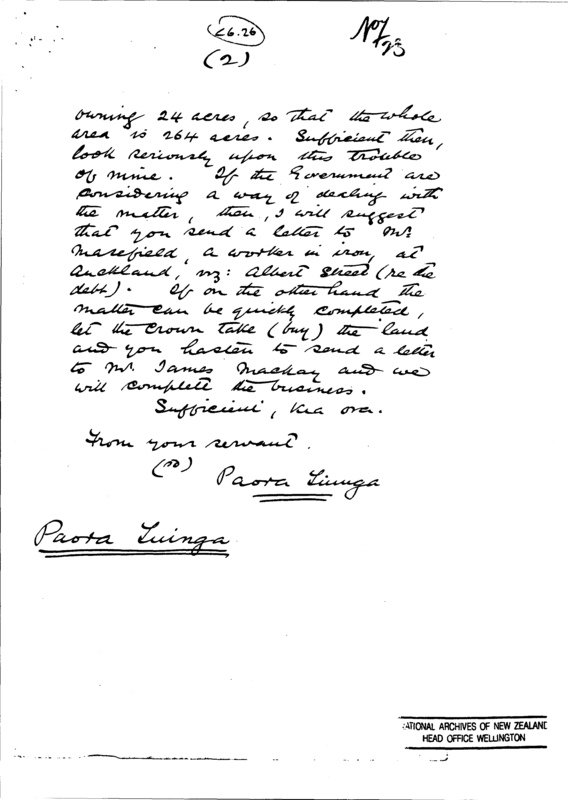 26.26
(2)
owning 24 acres, so that the whole
area is 264 acres. Sufficient then,
look seriously upon this trouble
of mine. If the Government are
considering a way of dealing with
the matter, then, I will suggest
that you send a letter to Mr.
Masefield, a worker in iron, at
Auckland, viz: Albert Street (re the
debt). If on the other hand the
matter can be quickly completed,
let the Crown take (buy) the land
and you hasten to send a letter
to Mr. James Mackay and we
will complete the business.
Sufficient, Kia ora.
From your servant.
Paora
Paora Tuinga
NATIONAL ARCHIVES OF NEW ZEALAND
HEAD OFFICE WELLINGTON